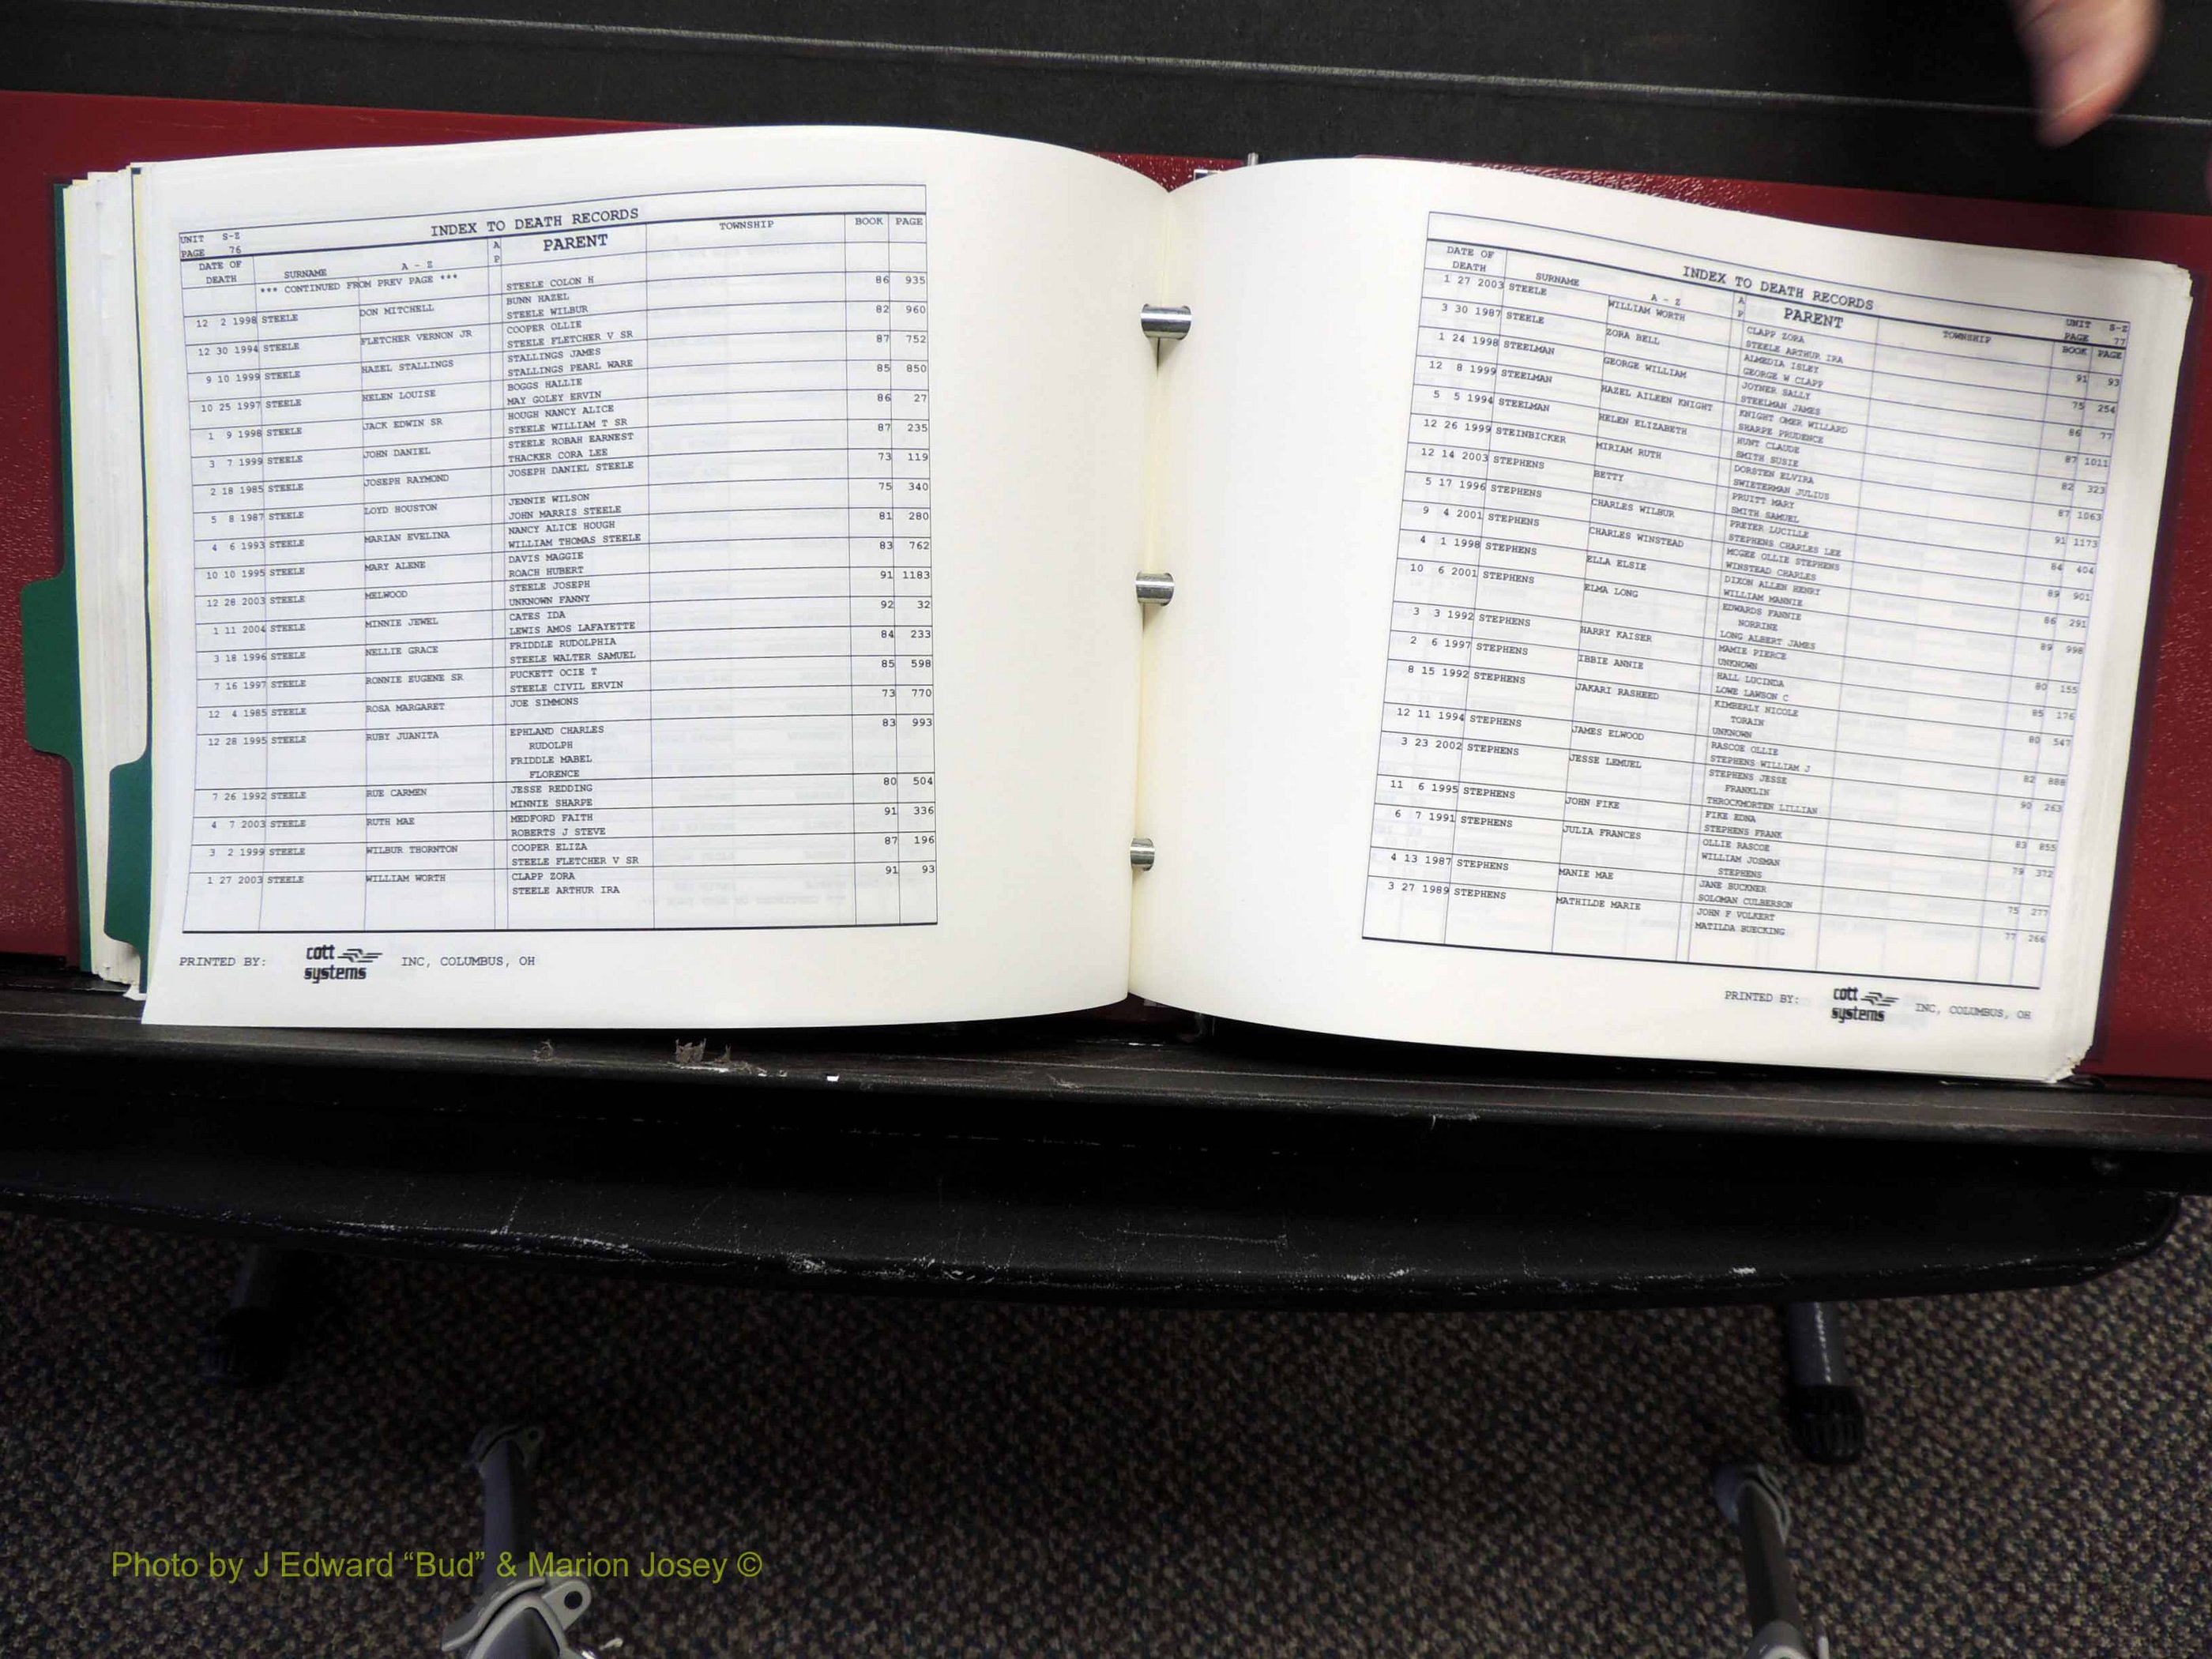 INDEX TO DEATH RECORDS
UNIT S-Z
PAGE 76
DATE OF DEATH SURNAME A - Z A P PARENT TOWNSHIP BOOK PAGE
*** CONTINUED FROM PREV PAGE ***
12 2 1998 STEELE DON MITCHELL STEELE COLON H 86 935
BUNN HAZEL
12 30 1994 STEELE FLETCHER VERNON JR STEELE WILBUR 82 960
COOPER OLLIE
9 10 1999 STEELE HAZEL STALLINGS STEELE FLETCHER V SR 87 752
STALLINGS JAMES
10 25 1997 STEELE HELEN LOUISE STALLINGS PEARL WARE 85 850
BOGGS HALLIE
1 9 1998 STEELE JACK EDWIN SR MAY GOLEY ERVIN 86 27
HOUGH NANCY ALICE
3 7 1999 STEELE JOHN DANIEL STEELE WILLIAM T SR 87 235
STEELE ROBAH EARNEST
2 18 1985 STEELE JOSEPH RAYMOND THACKER CORA LEE 73 119
JOSEPH DANIEL STEELE
5 8 1987 STEELE LOYD HOUSTON JENNIE WILSON 75 340
JOHN MARRIS STEELE
4 6 1993 STEELE MARIAN EVELINA NANCY ALICE HOUGH 81 280
WILLIAM THOMAS STEELE
10 10 1995 STEELE MARY ALENE DAVIS MAGGIE 83 762
ROACH HUBERT
12 28 2003 STEELE MELWOOD STEELE JOSEPH 91 1183
UNKNOWN FANNY
1 11 2004 STEELE MINNIE JEWEL CATES IDA 92 32
LEWIS AMOS LAFAYETTE
3 18 1996 STEELE NELLIE GRACE FRIDDLE RUDOLPHIA 84 233
STEELE WALTER SAMUEL
7 16 1997 STEELE RONNIE EUGENE SR PUCKETT OCIE T 85 598
STEELE CIVIL ERVIN
12 4 1985 STEELE ROSA MARGARET JOE SIMMONS 73 770
12 28 1995 STEELE RUBY JUANITA EPHLAND CHARLES 83 993
RUDOLPH
FRIDDLE MABEL
FLORENCE
7 26 1992 STEELE RUE CARMEN JESSE REDDING 80 504
MINNIE SHARPE
4 7 2003 STEELE RUTH MAE MEDFORD FAITH 91 336
ROBERTS J STEVE
3 2 1999 STEELE WILBUR THORNTON COOPER ELIZA 87 196
STEELE FLETCHER V SR
1 27 2003 STEELE WILLIAM WORTH CLAPP ZORA 91 93
STEELE ARTHUR IRA
PRINTED BY: cott systems INC, COLUMBUS, OH
INDEX TO DEATH RECORDS
UNIT S-Z
PAGE 77
DATE OF DEATH SURNAME A - Z A P PARENT TOWNSHIP BOOK PAGE
1 27 2003 STEELE WILLIAM WORTH CLAPP ZORA 91 93
STEELE ARTHUR IRA
3 30 1987 STEELE ZORA BELL ALMEDIA ISLEY 75 254
GEORGE W CLAPP
1 24 1998 STEELMAN GEORGE WILLIAM JOYNER SALLY 86 77
STEELMAN JAMES
12 8 1999 STEELMAN HAZEL AILEEN KNIGHT KNIGHT OMER WILLARD 87 1011
SHARPE PRUDENCE
5 5 1994 STEELMAN HELEN ELIZABETH HUNT CLAUDE 82 323
SMITH SUSIE
12 26 1999 STEINBICKER MIRIAM RUTH DORSTEN ELVIRA 87 1063
SWIETERMAN JULIUS
12 14 2003 STEPHENS BETTY PRUITT MARY 91 1173
SMITH SAMUEL
5 17 1996 STEPHENS CHARLES WILBUR PREYER LUCILLE 84 404
STEPHENS CHARLES LEE
9 4 2001 STEPHENS CHARLES WINSTEAD MCGEE OLLIE STEPHENS 89 901
WINSTEAD CHARLES
4 1 1998 STEPHENS ELLA ELSIE DIXON ALLEN HENRY 86 291
WILLIAM MANNIE
10 6 2001 STEPHENS ELMA LONG EDWARDS FANNIE 89 998
NORRINE
LONG ALBERT JAMES
3 3 1992 STEPHENS HARRY KAISER MAMIE PIERCE 80 155
UNKNOWN
2 6 1997 STEPHENS IBBIE ANNIE HALL LUCINDA 85 176
LOWE LAWSON C
8 15 1992 STEPHENS JAKARI RASHEED KIMBERLY NICOLE 80 547
TORAIN
UNKNOWN
12 11 1994 STEPHENS JAMES ELWOOD RASCOE OLLIE 82 888
STEPHENS WILLIAM J
3 23 2002 STEPHENS JESSE LEMUEL STEPHENS JESSE 90 263
FRANKLIN
THROCKMORTEN LILLIAN
11 6 1995 STEPHENS JOHN FIKE FIKE EDNA 83 855
STEPHENS FRANK
6 7 1991 STEPHENS JULIA FRANCES OLLIE RASCOE 79 372
WILLIAM JOSMAN
STEPHENS
4 13 1987 STEPHENS MANIE MAE JANE BUCKNER 75 277
SOLOMAN CULBERSON
3 27 1989 STEPHENS MATHILDE MARIE JOHN F VOLKERT 77 266
MATILDA BUECKING
PRINTED BY: cott systems INC, COLUMBUS, OH
Photo by J Edward “Bud” & Marion Josey ©